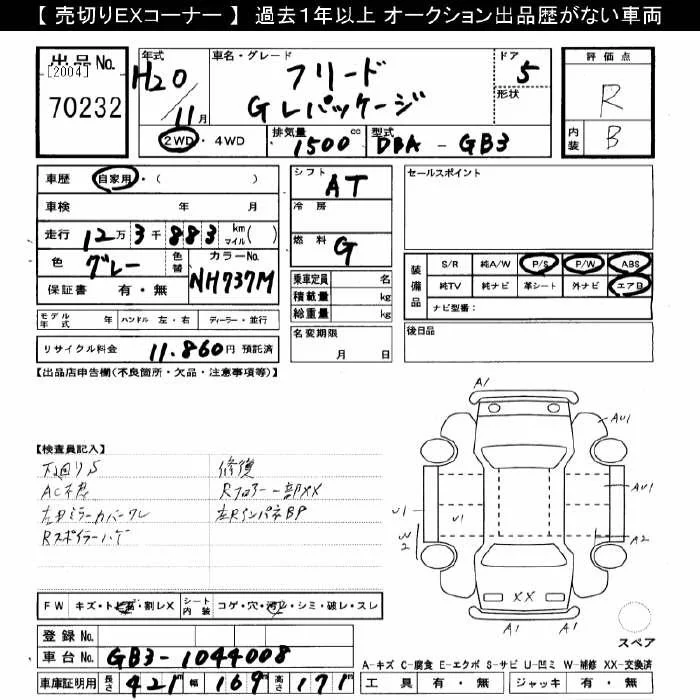 【 売切りEXコーナー 】 過去１年以上 オークション出品歴がない車両
出品 No.
[2004]
70232
年式
H20
/11月
車名・グレード
フリード
GLパッケージ
ドア
5
形状
評価点
R
内装
B
2WD ・ 4WD
排気量
1500cc
型式
DBA - GB3
車歴 自家用・( )
車検 年 月
走行 12万3千883 km マイル( )
色 グレー 色替
カラーNo. NH737M
保証書 有・無
シフト
AT
冷房
燃料
G
乗車定員 名
積載量 kg
総重量 kg
セールスポイント
装備品
S/R 純A/W P/S P/W ABS
純TV 純ナビ 革シート 外ナビ エアB
ナビ型番：
モデル年式 年 ハンドル 左・右 ディーラー・並行
リサイクル料金 11.860円 預託済
名変期限
月 日
後日品
【出品店申告欄(不良箇所・欠品・注意事項等)】
【検査員記入】
下廻りS
AC不良
左Dミラーカバーワレ
Rスポイラーハゲ
修復
Rフロアー一部XX
左RインパネBP
A1
AU1
AU1
U1
U1
W2
A2
XX
A1
A1
スペア
FW キズ・トビ石・割レX
シート内装 コゲ・穴・汚レ・シミ・破レ・スレ
登録 No.
車台 No. GB3-1044008
車庫証明用 長さ 421 幅 169 高さ 171
A-キズ C-腐食 E-エクボ S-サビ U-凹ミ W-補修 XX-交換済
工具 有・無 ジャッキ 有・無